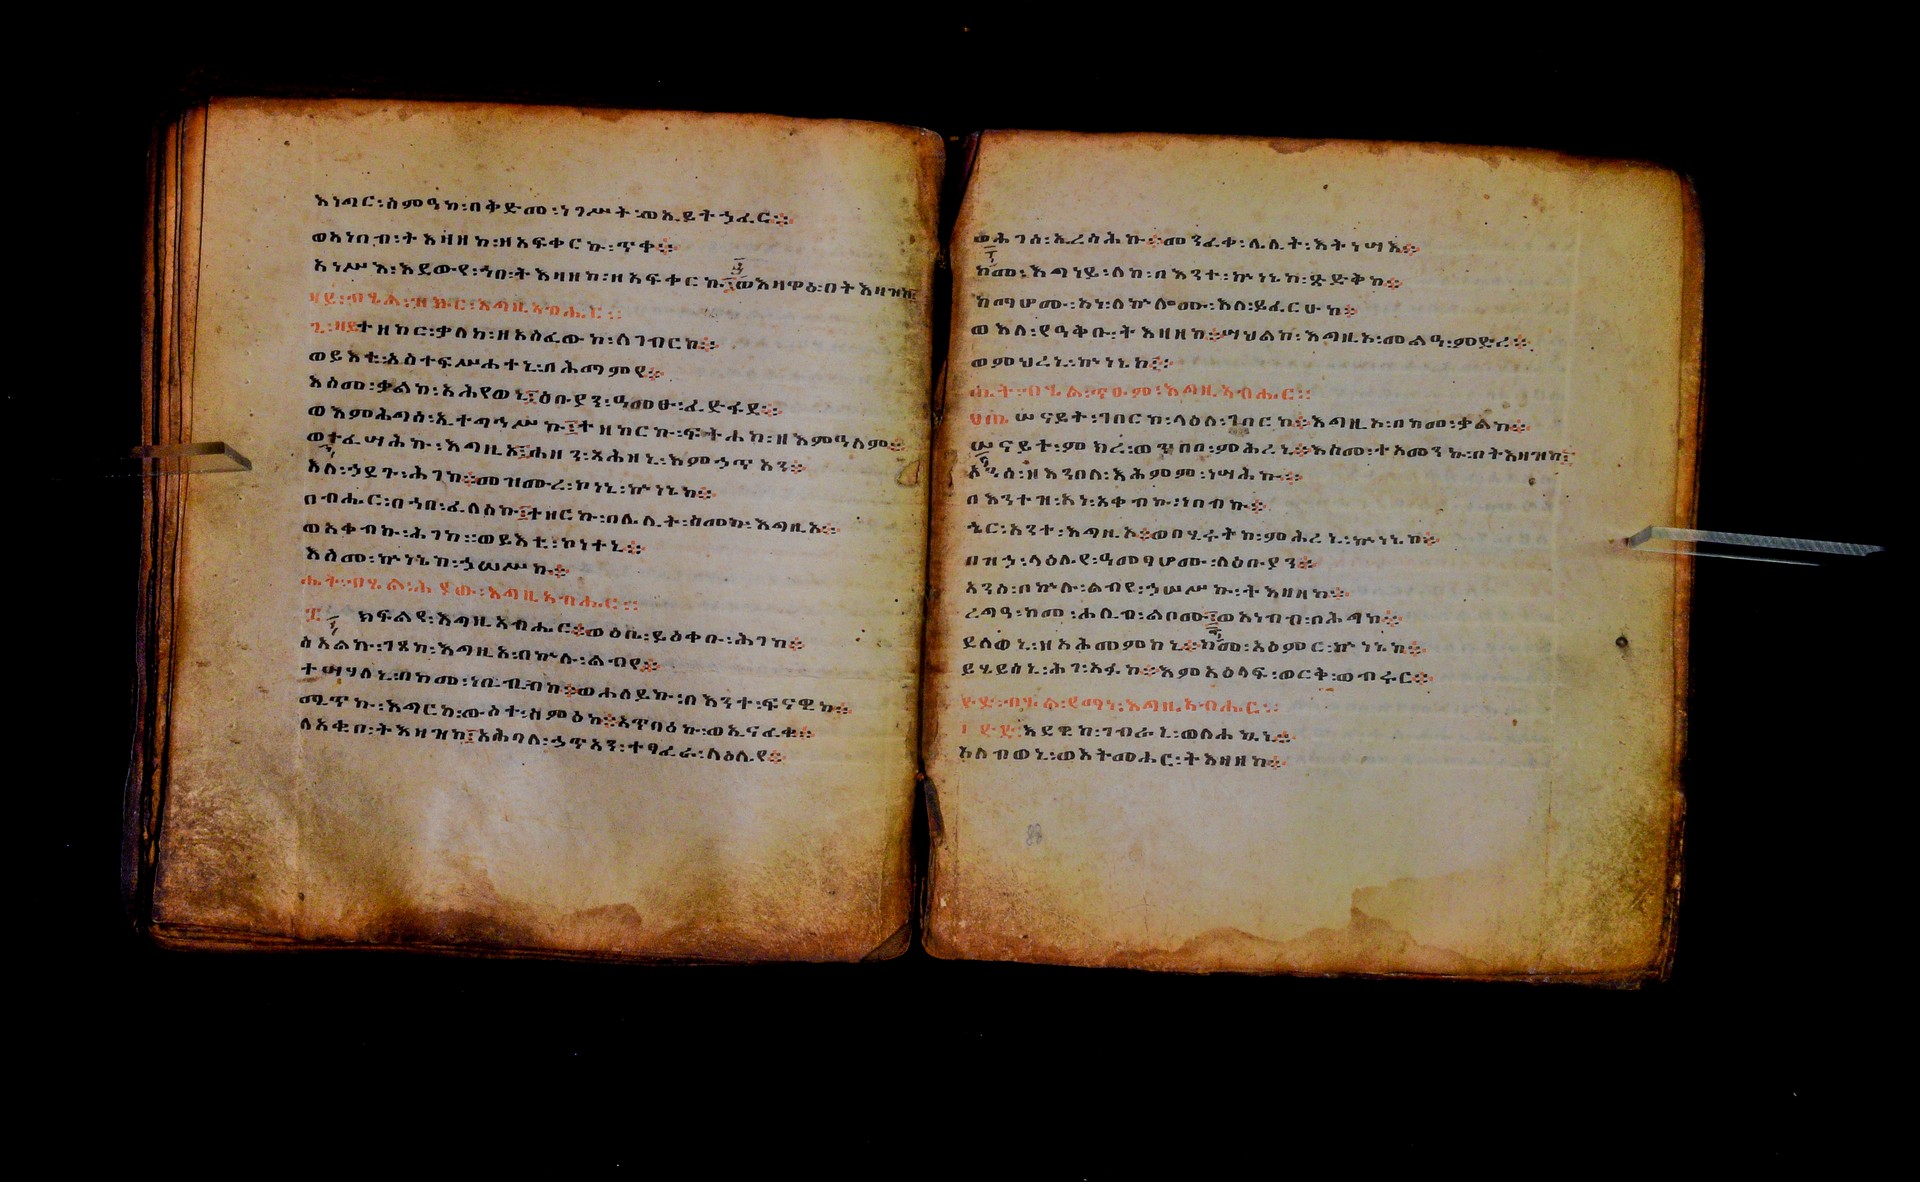 እነጋር፡ስምዓከ፡በቅድመ፡ነገሥት፡ወኢይትኃፈር።
ወአነበብ፡ትእዛዘከ፡ዘአፍቀርኩ፡ጥቀ።
አነሥእ፡እደውየ፡ኀበ፡ትእዛዘከ፡ዘአፍቀርኩ፡ወእዛዋዕ፡በትእዛዝከ
ዛይ፡ብሂል፡ዝክር፡እግዚአብሔር።
ተዘከር፡ቃለከ፡ዘአስፈውከ፡ለገብርከ።
ወይእቲ፡አስተፍሥሐተኒ፡በሕማምየ።
እስመ፡ቃልከ፡አሕየወኒ፡ዕቡያን፡ዓመፁ፡ፈድፋደ።
ወእምሕግስ፡ኢተግኅሥኩ፡ተዘከርኩ፡ፍትሐከ፡ዘእምዓለም።
ወተፈሣሕኩ፡እግዚኦ፡ሐዘን፡አሕዘኒ፡እምኃጥአን።
እለ፡ኃደጉ፡ሕገከ።መዝሙረ፡ኮነኒ፡ኵነኔከ።
በብሔር፡በኀበ፡ፈለስኩ፡ተዘከርኩ፡በሌሊት፡ስመከ፡እግዚኦ።
ወአቀብኩ፡ሕገከ።ወይእቲ፡ኮነተኒ።
እስመ፡ኵነኔከ፡ኃሠሥኩ።
ሔት፡ብሂል፡ሕያው፡እግዚአብሔር።
ክፍልየ፡እግዚአብሔር።ወዕቤ፡ይዕቀቡ፡ሕገከ።
ሰአልኩ፡ገጸከ፡እግዚኦ፡በኵሉ፡ልብየ።
ተሣሃለኒ፡በከመ፡ነቢብከ።ወሐለይኩ፡በእንተ፡ፍናዊከ።
ሜጥኩ፡እግርከ፡ውስተ፡ስምዕከ።አጥባዕኩ፡ወኢናፈቁ።
ለአቂበ፡ትእዛዝከ፡አሕባለ፡ኃጥአን፡ተፃፈራ፡ላዕሌየ።
ወሕገሰ፡ኢረሳሕኩ።መንፈቀ፡ሌሊት፡እትነሣእ።
ከመ፡እግነይ፡ለከ፡በእንተ፡ኵነኔከ፡ጽድቅከ።
ከማሆሙ፡አነ፡ለኵሎሙ፡እለ፡ይፈርሁከ።
ወእለ፡የዓቅቡ፡ትእዛዘከ።ሣህልከ፡እግዚኦ፡መልዓ፡ምድረ።
ወምህረኒ፡ኵነኔከ።
ጤት፡ብሂል፡ጥዑም፡እግዚአብሔር።
ሠናይት፡ገበርከ፡ላዕለ፡ገብርከ።እግዚኦ፡በከመ፡ቃልከ።
ሠናይተ፡ምክረ፡ወጥበበ፡ምሕረኒ።እስመ፡ተአመንኩ፡በትእዛዝከ
አንሰ፡ዘእንበለ፡እሕምም፡ነሣሕኩ።
በእንተዝ፡አነ፡አቀብኩ፡ነበብኩ።
ኄር፡አንተ፡እግዚኦ።ወበሂሩትከ፡ምሕረኒ፡ኵነኔከ።
በዝኃ፡ላዕሌየ፡ዓመፃሆሙ፡ለዕቡያን።
አንሰ፡በኵሉ፡ልብየ፡ኃሠሥኩ፡ትእዛዘከ።
ረግዓ፡ከመ፡ሐሊብ፡ልቦሙ፡ወአነብብ፡በሕግከ።
ይሌወኒ፡ዘአሕመምከኒ።ከመ፡አዕምር፡ኵነኔከ።
ይሄይሰኒ፡ሕገ፡አፉከ።እምአዕላፍ፡ወርቅ፡ወብሩር።
ዮድ፡ብሂል፡የማነ፡እግዚአብሔር።
እደዊከ፡ገብራኒ፡ወለሐኳኒ።
አለብወኒ፡ወእትመሐር፡ትእዛዘከ።
88